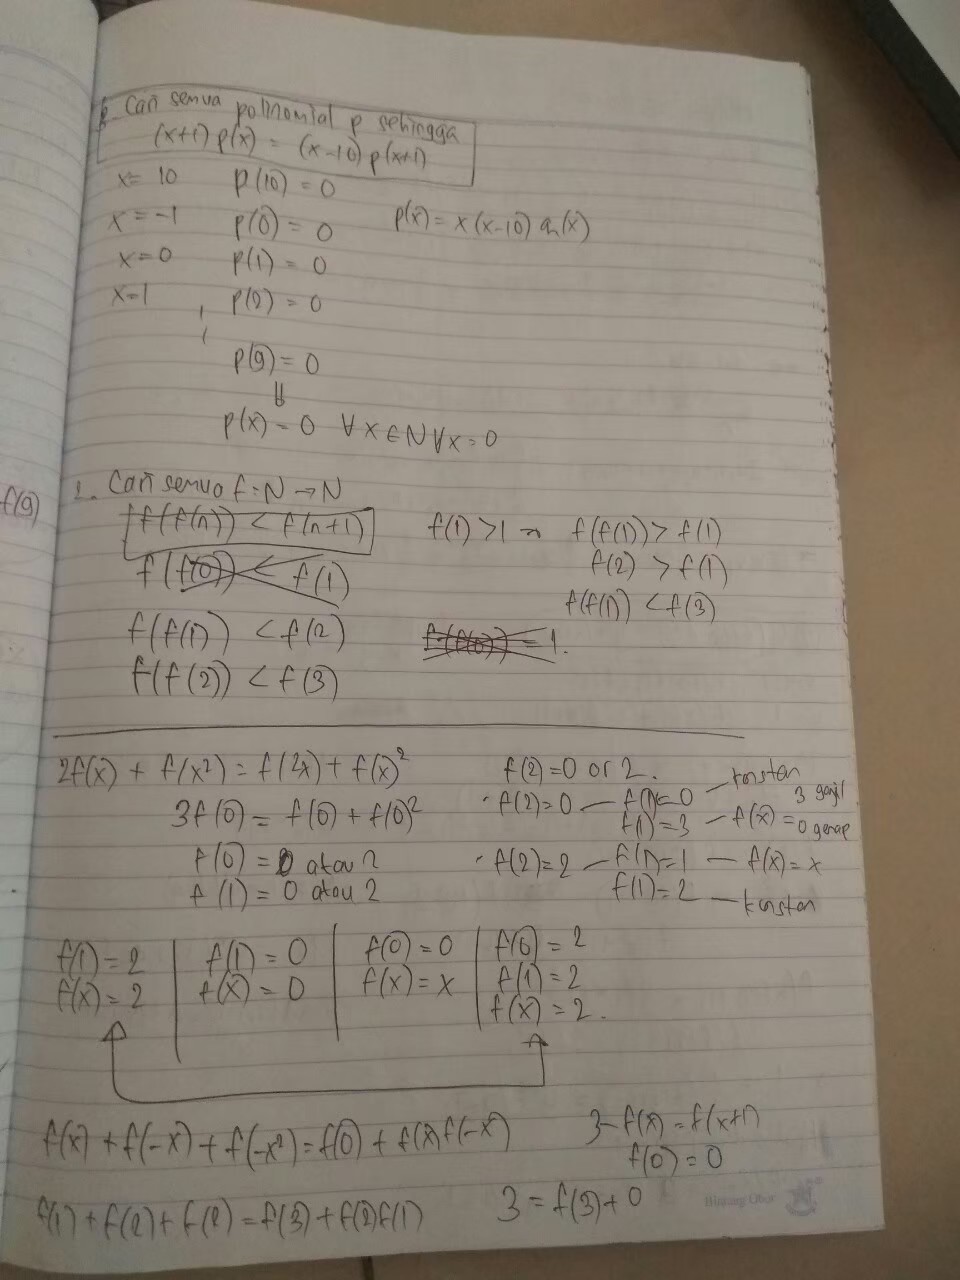 Cari semua polinomial p sehingga
(x+1) p(x) = (x-10) p(x+1)
x = 10 p(10) = 0
x = -1 p(0) = 0 p(x) = x (x-10) Q(x)
x = 0 p(1) = 0
x = 1 p(2) = 0
p(9) = 0
⇓
p(x) = 0 ∀x∈N ∀x=0
f(9)
Cari semua f: N → N
f(f(n)) < f(n+1) f(1) > 1 f(f(1)) > f(1)
f(f(0)) < f(1) f(2) > f(1)
f(f(1)) < f(3)
f(f(1)) < f(2) f(f(0)) = 1.
f(f(2)) < f(3)
2f(x) + f(x²) = f(2x) + f(x)² f(2) = 0 or 2.
3f(0) = f(0) + f(0)²
f(0) = 0 atau 2
f(1) = 0 atau 2
· f(2) = 0 — f(1) = 0 — konstan
f(1) = 3 — f(x) = 3 ganjil
0 genap
· f(2) = 2 — f(1) = 1 — f(x) = x
f(1) = 2 — konstan
f(1) = 2 f(1) = 0 f(0) = 0 f(0) = 2
f(x) = 2 f(x) = 0 f(x) = x f(1) = 2
f(x) = 2.
f(x) + f(-x) + f(-x²) = f(0) + f(x) f(-x) 3 - f(x) = f(x+1)
f(0) = 0
f(1) + f(2) + f(2) = f(3) + f(2)f(1) 3 = f(3) + 0